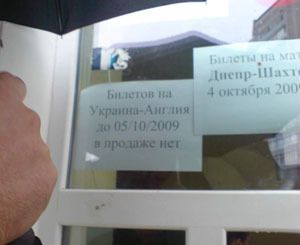 Билетов на
Украина-Англия
до 05/10/2009
в продаже нет
Билеты на
Днепр-Шахт
4 октября 2009